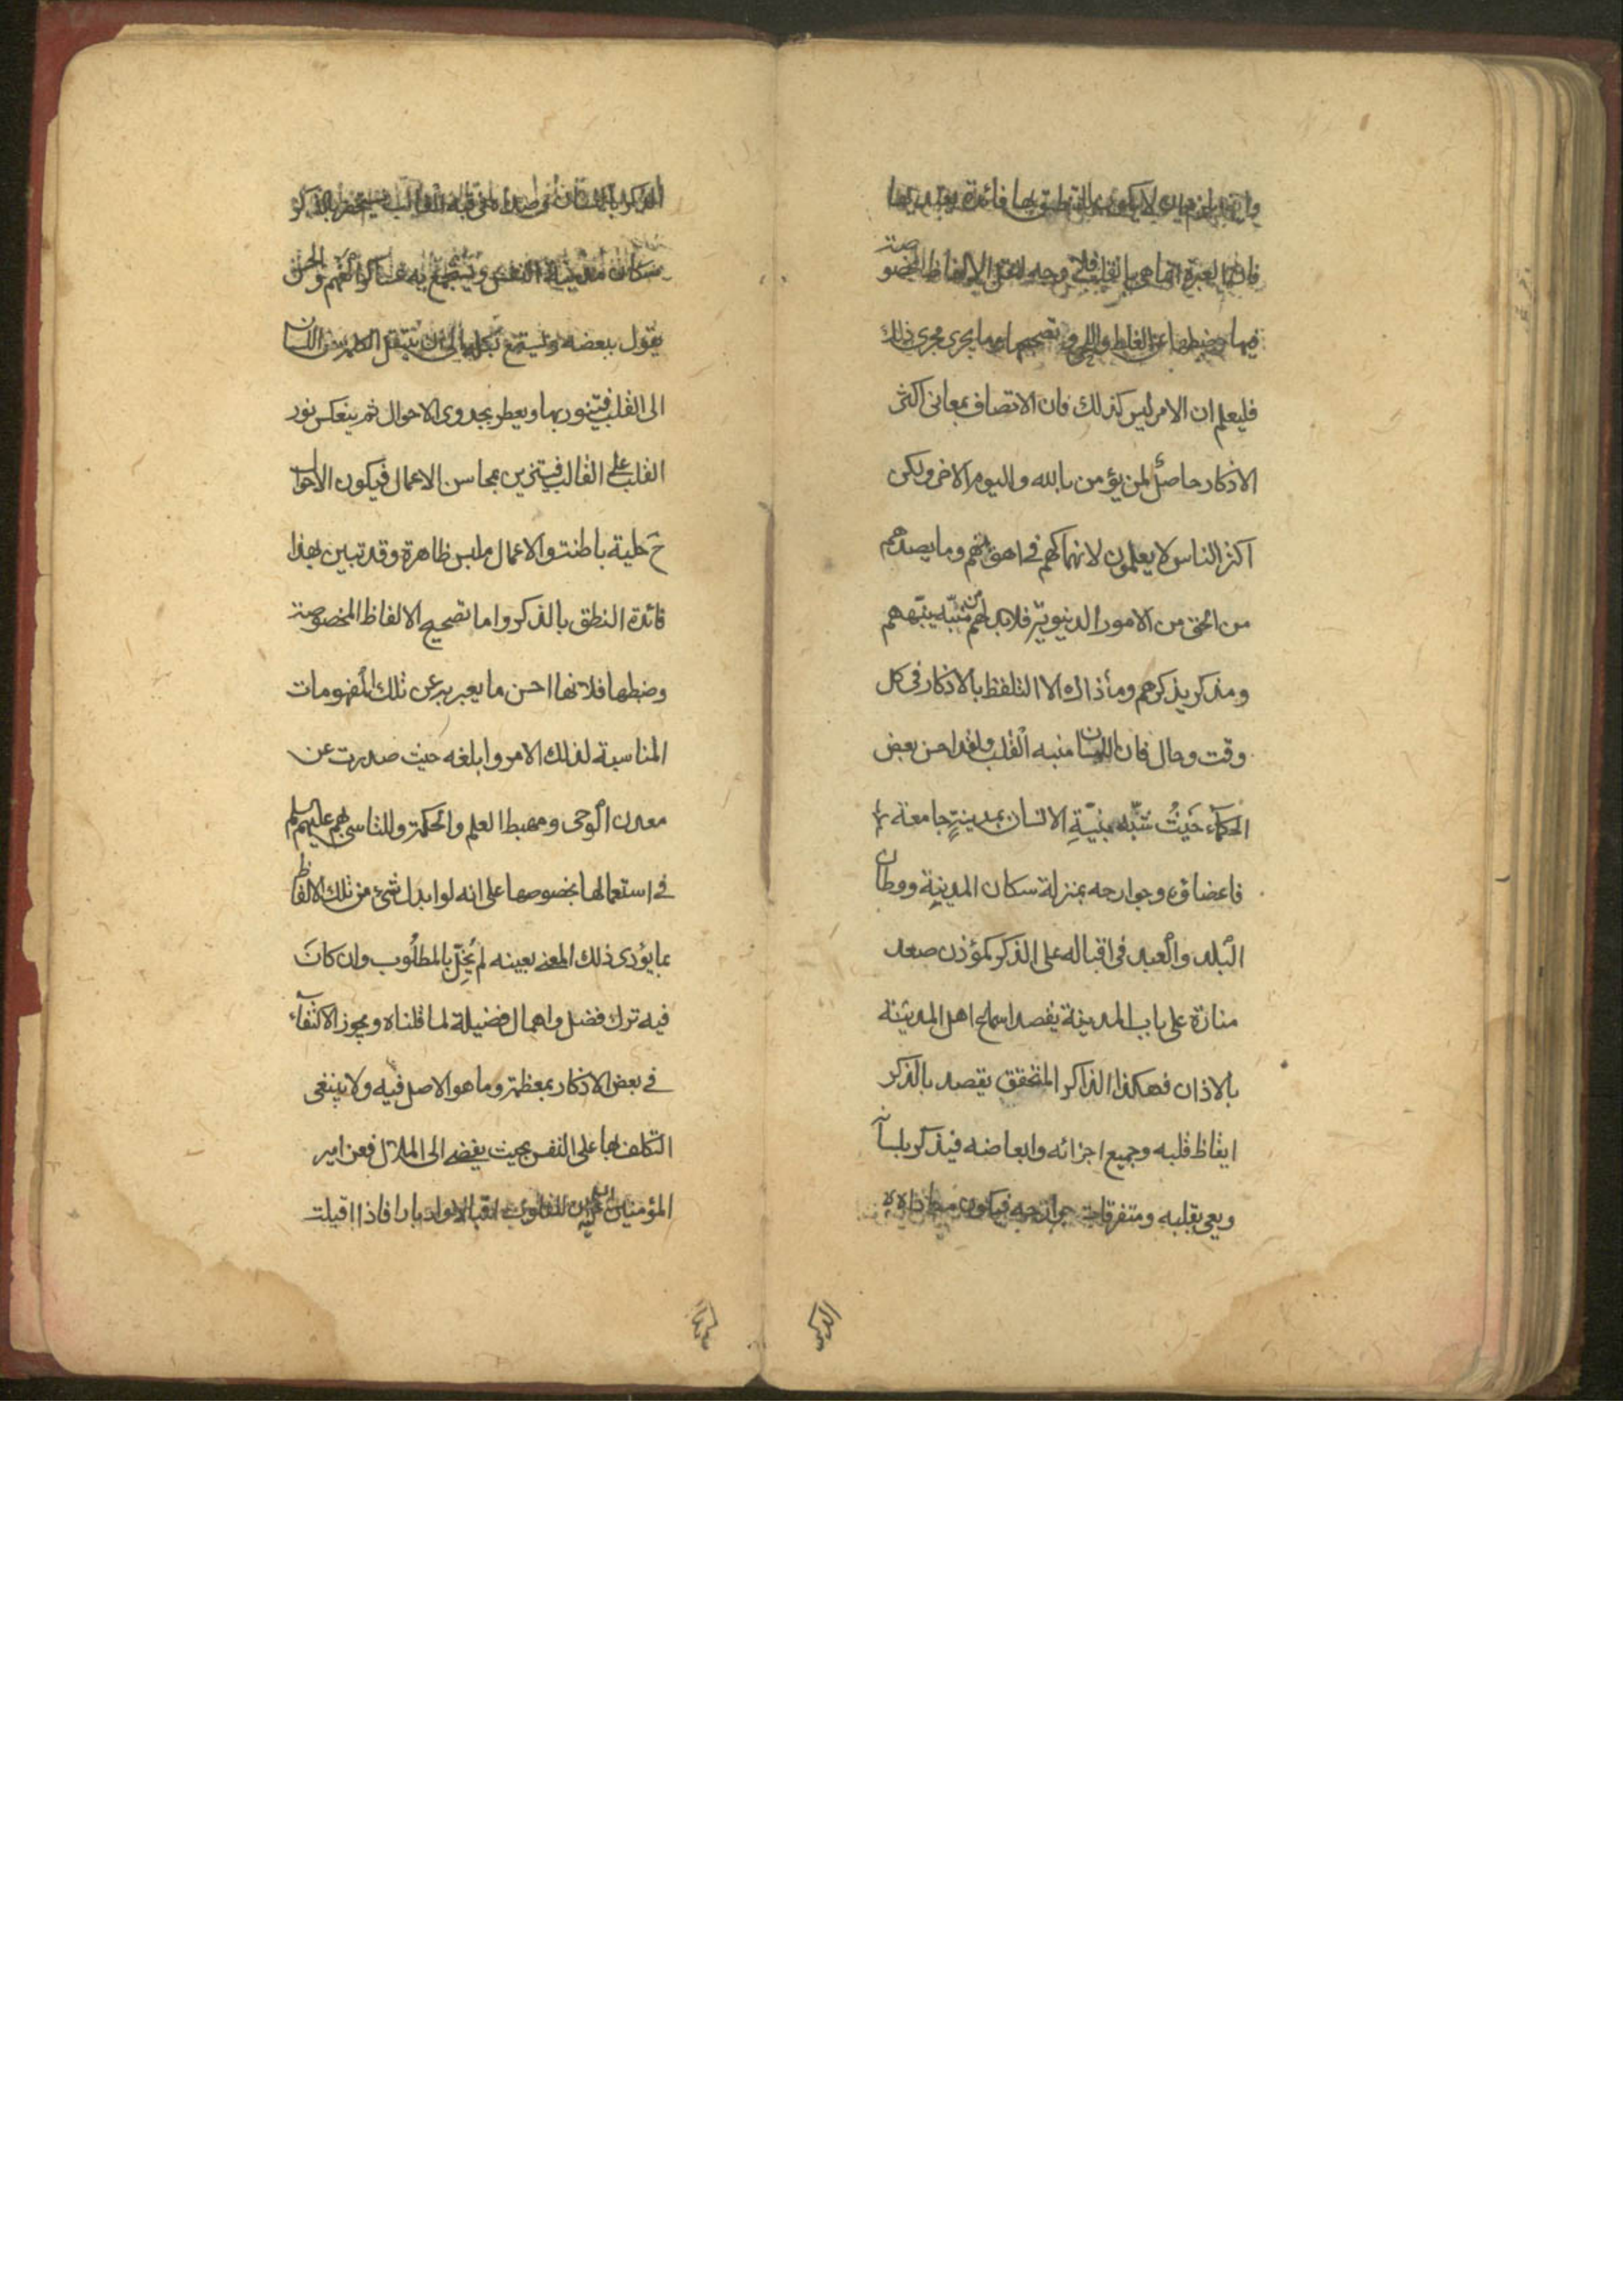 فائدة يعتد بها
فان العبرة انما هي بالقلب فلاي وجه الالفاظ المخصوصة
فيها وضبطها عن الغلط واللحن وتصحيحها وما يجرى مجرى ذلك
فليعلم ان الامر ليس كذلك فان الاتصاف بمعانى اكثر
الاذكار حاصل لمن يؤمن بالله واليوم الاخر ولكن
اكثر الناس لا يعلمون لانهماكهم فى اهوائهم وما يصدهم
من الحق من الامور الدنيوية فلا بد لهم من منبّه ينبّههم
ومذكر يذكرهم وما ذاك الا التلفظ بالاذكار فى كل
وقت وحال فان اللسان منبه القلب ولقد احسن بعض
الحكماء حَيثُ شبّه بنيّةِ الانسان بمدينةٍ جامعة
فاعضاؤه وجوارحه بمنزلة سكان المدينة ووطان
البلد والعبد فى اقباله على الذكر كمؤذن صعد
منارة على باب المدينة يقصد اسماع اهل المدينة
بالاذان فهكذا الذاكر المتحقق يقصد بالذكر
ايقاظ قلبه وجميع اجزائه وابعاضه فيذكر بلسانه
ويعى بقلبه ومتفرقات جوارحه فيكون
الذكر باللسان القالب فيستحضر بالذكر
سكان مدينة النفس ويستجمع به عساكر الفهم والحس
يقول ببعضه ويستمع بكله الى ان تنتقل الكلمة من اللسان
الى القلب فيتنور بها ويعطر بجدوى الاحوال ثم ينعكس نور
القلب على القالب فيتزين بمحاسن الاعمال فيكون الاحوال
ح حلية باطنة والاعمال ملبس ظاهرة وقد تبين بهذا
فائدة النطق بالذكر واما تصحيح الالفاظ المخصوصة
وضبطها فلانها احسن ما يعبر به عن تلك المفهومات
المناسبة لذلك الامر وابلغه حيث صدرت عن
معدن الوحى ومهبط العلم والحكمة وللتاسى بهم عليهم السلم
فى استعمالها بخصوصها على انه لو ابدل شئ من تلك الالفاظ
بما يؤدى ذلك المعنى بعينه لم يُخِلّ بالمطلُوب وان كانَ
فيه ترك فضل واهمال فضيلة لما قلناه ويجوز الاكتفاء
فى بعض الاذكار بمعظمة وما هو الاصل فيه ولا ينبغى
التكلف بها على النفس بحيث يفضى الى الملال فعن امير
المؤمنين ان للقلوب اقبالا وادبارا فاذا اقبلت